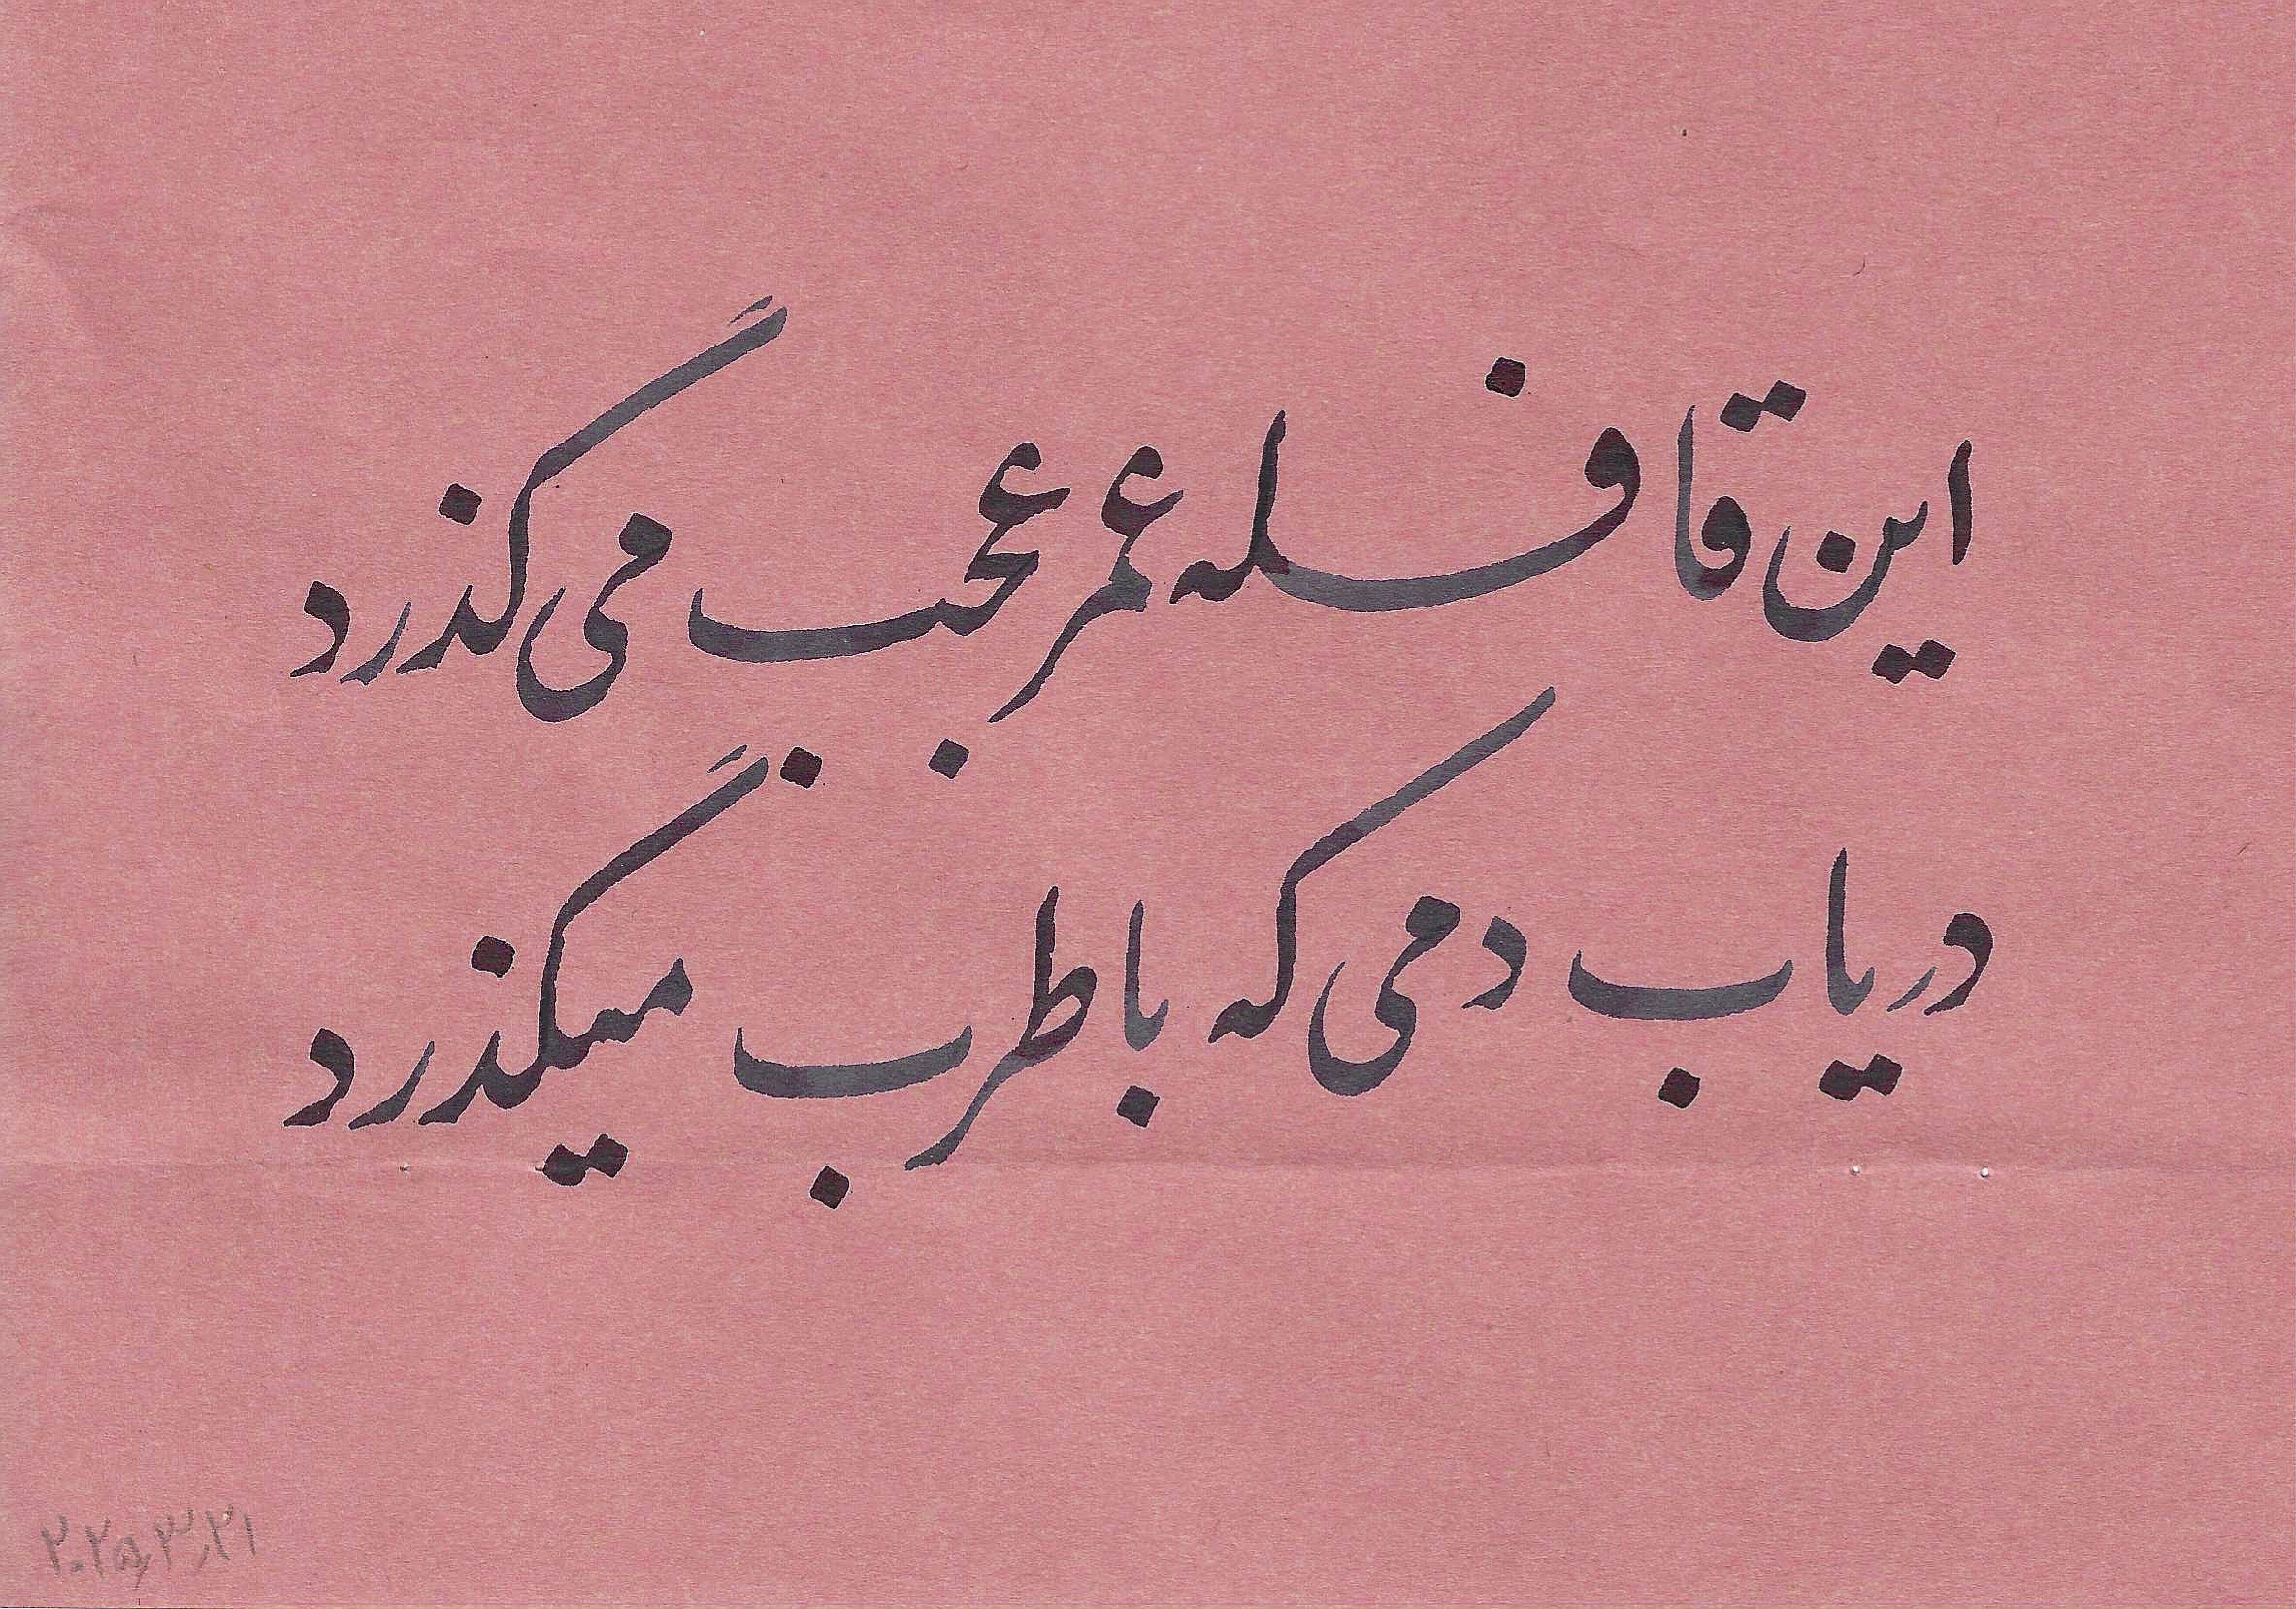 این قافله عمر عجب می گذرد
دریاب دمی که با طرب میگذرد
۲۰۲۵٫۳٫۲۱